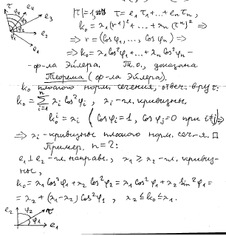 |τ| = 1 τ = e₁τ₁ + ... + eₙτₙ,
k₀ = λ₁(τ¹)² + ... + λₙ(τⁿ)² ⇒
⇒ τ = (cosφ₁, ..., cosφₙ) ⇒
⇒ k₀ = λ₁cos²φ₁ + ... + λₙcos²φₙ -
- ф-ла Эйлера. Т.о., доказана
Теорема (ф-ла Эйлера).
k₀ плоского норм. сечения, отвеч.
k₀ = Σ λᵢ cos²φᵢ, λᵢ - гл. кривизны
cosφᵢ = 1, cosφⱼ = 0 при
⇒ λᵢ - кривизне плоского норм. сеч-я. □
Пример. n = 2:
e₁ ⊥ e₂ - гл. направ., λ₁ ≥ λ₂ - гл. кривиз-
ны,
k₀ = λ₁cos²φ₁ + λ₂cos²φ₂ = λ₁cos²φ₁ + λ₂sin²φ₁ =
= λ₂ + (λ₁ - λ₂)cos²φ₁, λ₂ ≤ k₀ ≤ λ₁.
e₂ τ
φ e₁